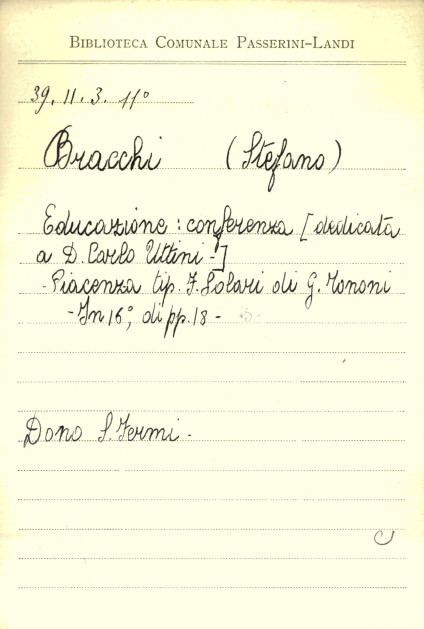 BIBLIOTECA COMUNALE PASSERINI-LANDI
39. 11. 3. 11°
Bracchi (Stefano)
Educazione : conferenza [dedicata
a D. Carlo Uttini -]
- Piacenza tip. F. Solari di G. Tononi
- In 16°, di pp. 18 -
Dono S. Fermi.